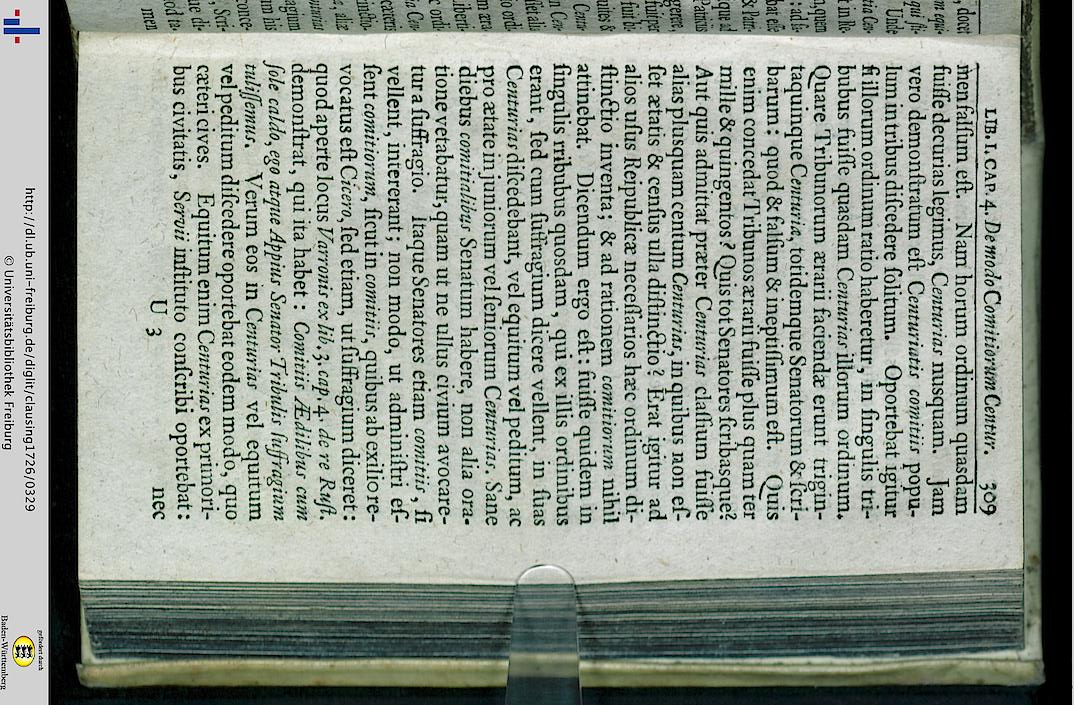 LIB. I. CAP. 4. De modo Comitiorum Centur. 309
men falſum eſt. Nam horum ordinum quasdam
fuiſſe decurias legimus, Centurias nusquam. Jam
vero demonſtratum eſt Centuriatis comitiis popu-
lum in tribus diſcedere ſolitum. Oportebat igitur
ſi illorum ordinum ratio haberetur, in ſingulis tri-
bubus fuiſſe quasdam Centurias illorum ordinum.
Quare Tribunorum ærarii faciendæ erunt trigin-
taquinque Centuriæ, totidemque Senatorum & ſcri-
barum: quod & falſum & ineptiſſimum eſt. Quis
enim concedat Tribunos ærarii fuiſſe plus quam ter
mille & quingentos? Quis tot Senatores ſcribasque?
Aut quis admittat præter Centurias claſſium fuiſſe
alias plusquam centum Centurias, in quibus non eſ-
ſet ætatis & cenſus ulla diſtinctio? Erat igitur ad
alios uſus Reipublicæ neceſſarios hæc ordinum di-
ſtinctio inventa; & ad rationem comitiorum nihil
attinebat. Dicendum ergo eſt: fuiſſe quidem in
ſingulis tribubus quosdam, qui ex illis ordinibus
erant, ſed cum ſuffragium dicere vellent, in ſuas
Centurias diſcedebant, vel equitum vel peditum, ac
pro ætate in juniorum vel ſeniorum Centurias. Sane
diebus comitialibus Senatum habere, non alia ora-
tione vetabatur, quam ut ne ullus civium avocare-
tur a ſuffragio. Itaque Senatores etiam comitiis, ſi
vellent, intererant; non modo, ut adminiſtri eſ-
ſent comitiorum, ſicut in comitiis, quibus ab exilio re-
vocatus eſt Cicero, ſed etiam, ut ſuffragium dicerent:
quod aperte locus Varronis ex lib. 3. cap. 4. de re Ruſt.
demonſtrat, qui ita habet: Comitiis Ædilibus cum
ſole caldo, ego atque Appius Senator Tribulis ſuffragium
tuliſſemus. Verum eos in Centurias vel equitum
vel peditum diſcedere oportebat eodem modo, quo
cæteri cives. Equitum enim Centurias ex primori-
bus civitatis, Servii inſtituto conſcribi oportebat:
U 3 nec
http://dl.ub.uni-freiburg.de/diglit/clausing1726/0329
© Universitätsbibliothek Freiburg
gefördert durch
Baden-Württemberg